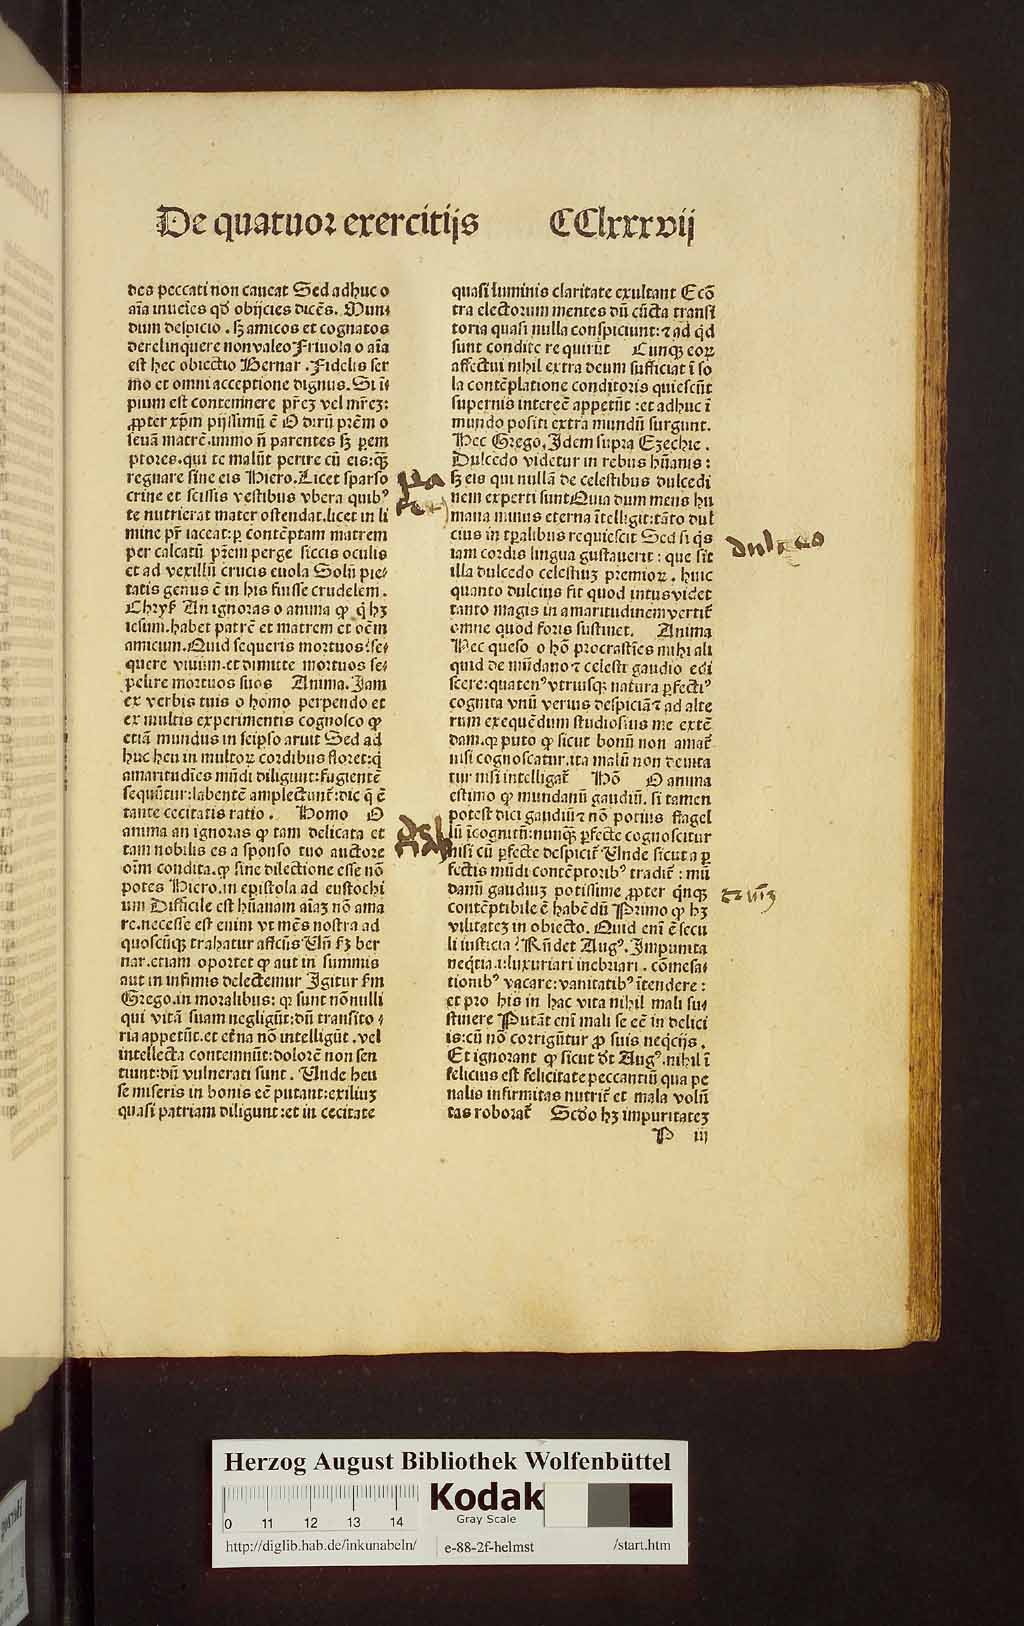 De quatuor exercitijs CClxxxvij
des peccati non caueat Sed adhuc o
aīa inueīes qđ obijcies dicēs. Mun⸗
dum despicio . sʒ amicos et cognatos
derelinquere non valeo Friuola o aīa
est hec obiectio Bernar . Fidelis ser
mo et omni acceptione dignus. Si ī⸗
pium est contemnere pr̄eʒ vel mr̄eʒ:
ꝓpter xp̄m pijssimū ē O dirū prēm o
seuā matrē.immo n̄ parentes sʒ ꝑem
ptores.qui te malūt perire cū eis:qꝫ̄
regnare sine eis Hiero. Licet sparso
crine et scissis vestibus vbera quibꝰ
te nutrierat mater ostendat.licet in li
mine pr̄ iaceat:ꝑ contēptam matrem
per calcatū pr̄em perge siccis oculis
et ad vexillū crucis euola Solū pie⸗
tatis genus ē in his fuisse crudelem .
Chrys̄ An ignoras o anima ꝙ q̇ hʒ
iesum.habet patrē et matrem et oēm
amicum.Quid sequeris mortuos?se⸗
quere viuum.et dimitte mortuos se⸗
pelire mortuos suos Anima. Jam
ex verbis tuis o homo perpendo et
ex multis experimentis cognosco ꝙ
etiā mundus in seipso aruit Sed ad
huc heu in multoꝝ cordibus floret:q̇
amaritudīes mūdi diligunt:fugientē
sequūtur:labentē amplectunt̄:dic q̄ ē
tante cecitatis ratio . Homo O
anima an ignoras ꝙ tam delicata et
tam nobilis es a sponso tuo auctore
oīm condita.ꝙ sine dilectione esse nō
potes Hiero.in epistola ad eustochi
um Difficile est hūanam aīaʒ nō ama
re.necesse est enim vt mēs nostra ad
quoscūqʒ trahatur affectus Un̄ sʒ ber
nar.etiam oportet ꝙ aut in summis
aut in infimis delectemur Igitur sm̄
Grego.in moralibus: qꝛ sunt nōnulli
qui vitā suam negligūt:dū transito ⸗
ria appetūt.et et̄na nō intelligūt .vel
intellecta contemnūt:dolorē non sen
tiunt:dū vulnerati sunt . Unde heu
se miseris in bonis eē putant:exiliuʒ
quasi patriam diligunt:et in cecitate
quasi luminis claritate exultant Ecō
tra electorum mentes dū cūcta transi
toria quasi nulla conspiciunt:⁊ ad qđ
sunt condite requirūt Cunqʒ eoꝝ
affectui nihil extra deum sufficiat ī so
la contēplatione conditoris quiescūt
supernis interee appetūt :et adhuc ī
mundo positi extra mundū surgunt.
Hec Grego. Idem supra Ezechie .
Dulcedo videtur in rebus hūanis :
sʒ eis qui nullā de celestibus dulcedi
nem experti sunt Quia dum mens hu
mana minus eterna ītelligit:tāto dul
cius in tꝑalibus requiescit Sed si q̇s
iam cordis lingua gustauerit : que sit
illa dulcedo celestiuʒ premioꝝ . huic
quanto dulcius fit quod intus videt
tanto magis in amaritudinem vertit̄
omne quod foris sustinet. Anima
Hec queso o hō procrastīes mihi ali
quid de mūdano ⁊ celesti gaudio edi
scere:quatenꝰ vtriusqʒ natura ꝑfectiꝰ
cognita vnū verius despiciā ⁊ ad alte
rum exequēdum studiosius me extē
dam.qꝛ puto ꝙ sicut bonū non amat̄
nisi cognoscatur.ita malū non deuita
tur nisi intelligat̄ Hō O anima
estimo ꝙ mundanū gaudiū. si tamen
potest dici gaudiū ⁊ nō potius flagel
lū īcognitū:nunqʒ̄ ꝑfecte cognoscitur
nisi cū ꝑfecte despicit̄ Unde sicut a ꝑ
fectis mūdi contēptoribꝰ tradit̄ : mū
danū gaudiuʒ potissime ꝓpter q̇nqʒ
contēptibile ē habēdū Primo ꝙ hʒ
vilitateʒ in obiecto. Quid enī ē secu
li iusticia ? Rn̄det Augꝰ. Impunita
neq̇tia.i:luxuriari inebriari. cōmesa⸗
tionibꝰ vacare:vanitatibꝰ ītendere :
et pro his in hac vita nihil mali su⸗
stinere Putāt enī mali se eē in delici
is:cū nō corrigūtur ꝓ suis neq̇cijs.
Et ignorant ꝙ sicut dt̄ Augꝰ.nihil ī
felicius est felicitate peccantiū qua pe
nalis infirmitas nutrit̄ et mala volū
tas roborat̄ Scđo hʒ impuritateʒ
P iij
dulcedo
Herzog August Bibliothek Wolfenbüttel
Kodak
Gray Scale
0 11 12 13 14
http://diglib.hab.de/inkunabeln/ e-88-2f-helmst /start.htm